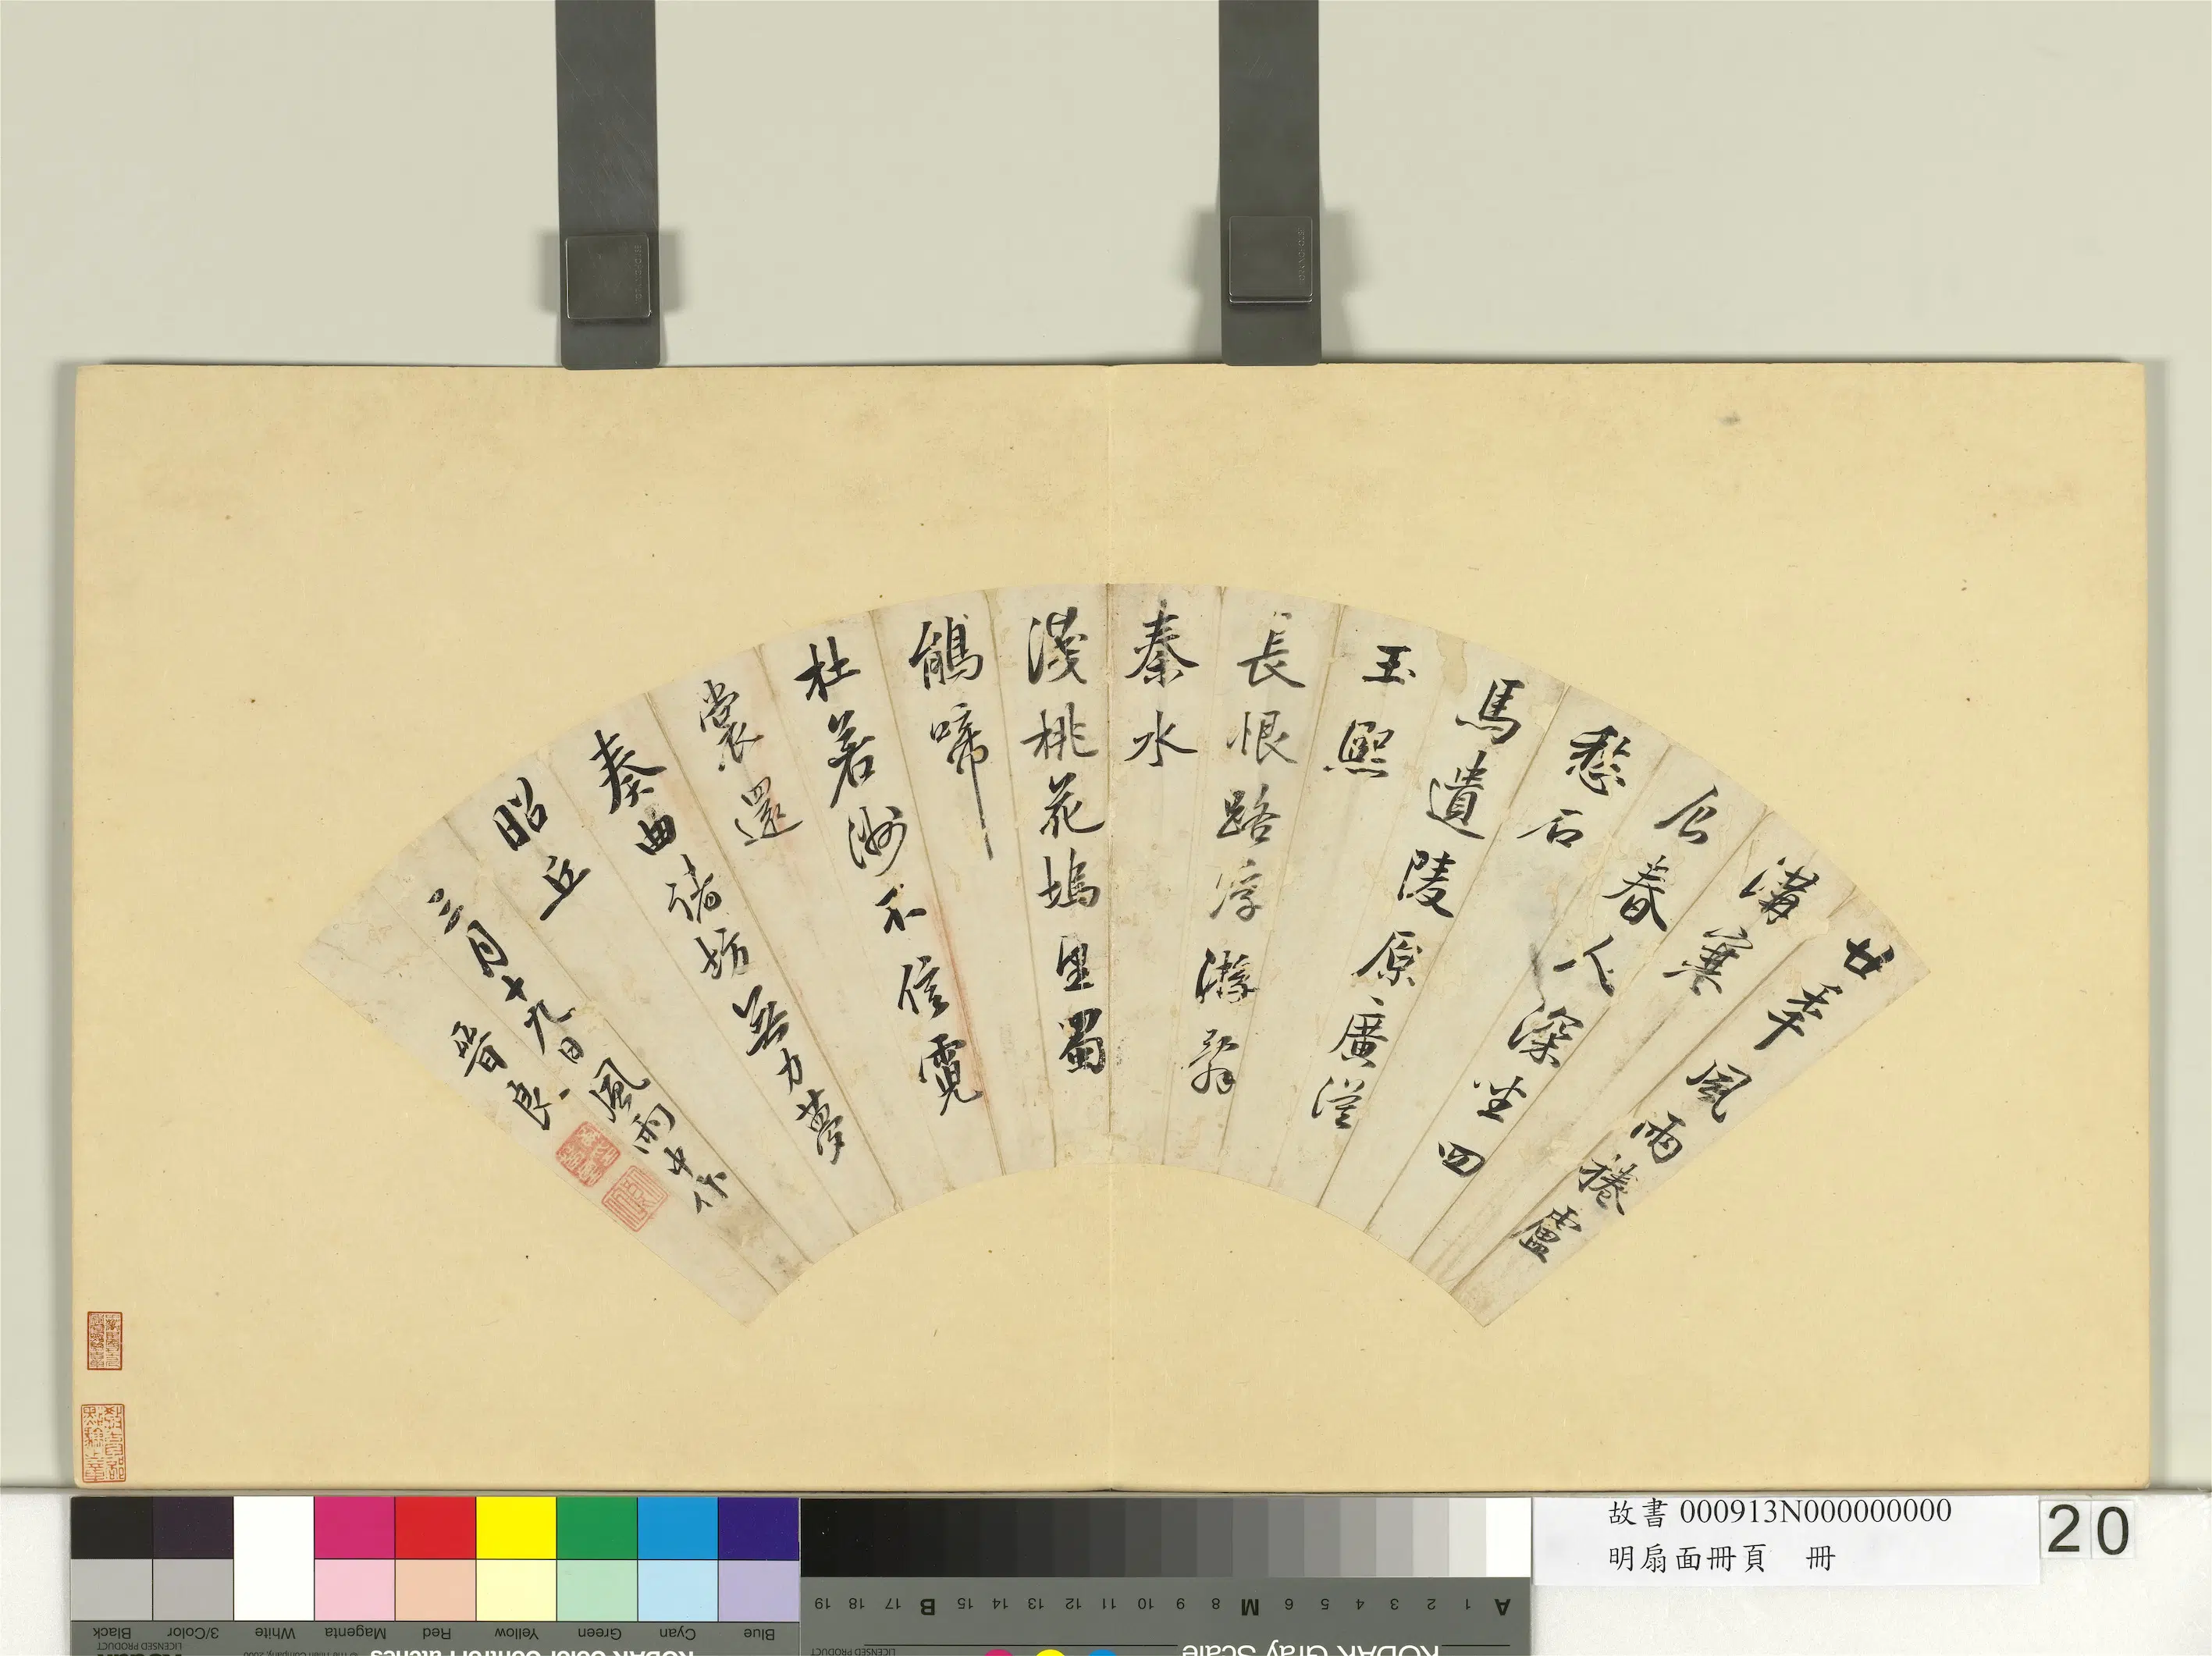 廿年風雨捲盧
溝寒
食春人深坐四
愁石
馬遺陵原廣
玉熙
長恨路浮游
秦水
淺桃花塢里蜀
鵑啼
杜若洲不信霓
裳還
奏曲坊無力夢
昭丘
三月十九日風雨中作
晉良
故書 000913N000000000
明扇面冊頁 冊
20
Black
3/Color
White
Magenta
Red
Yellow
Green
Cyan
Blue
A 1 2 3 4 5 6 M 8 9 10 11 12 13 14 15 B 17 18 19
KODAK Gray Scale
LICENSED PRODUCT
KODAK Color Control Patches